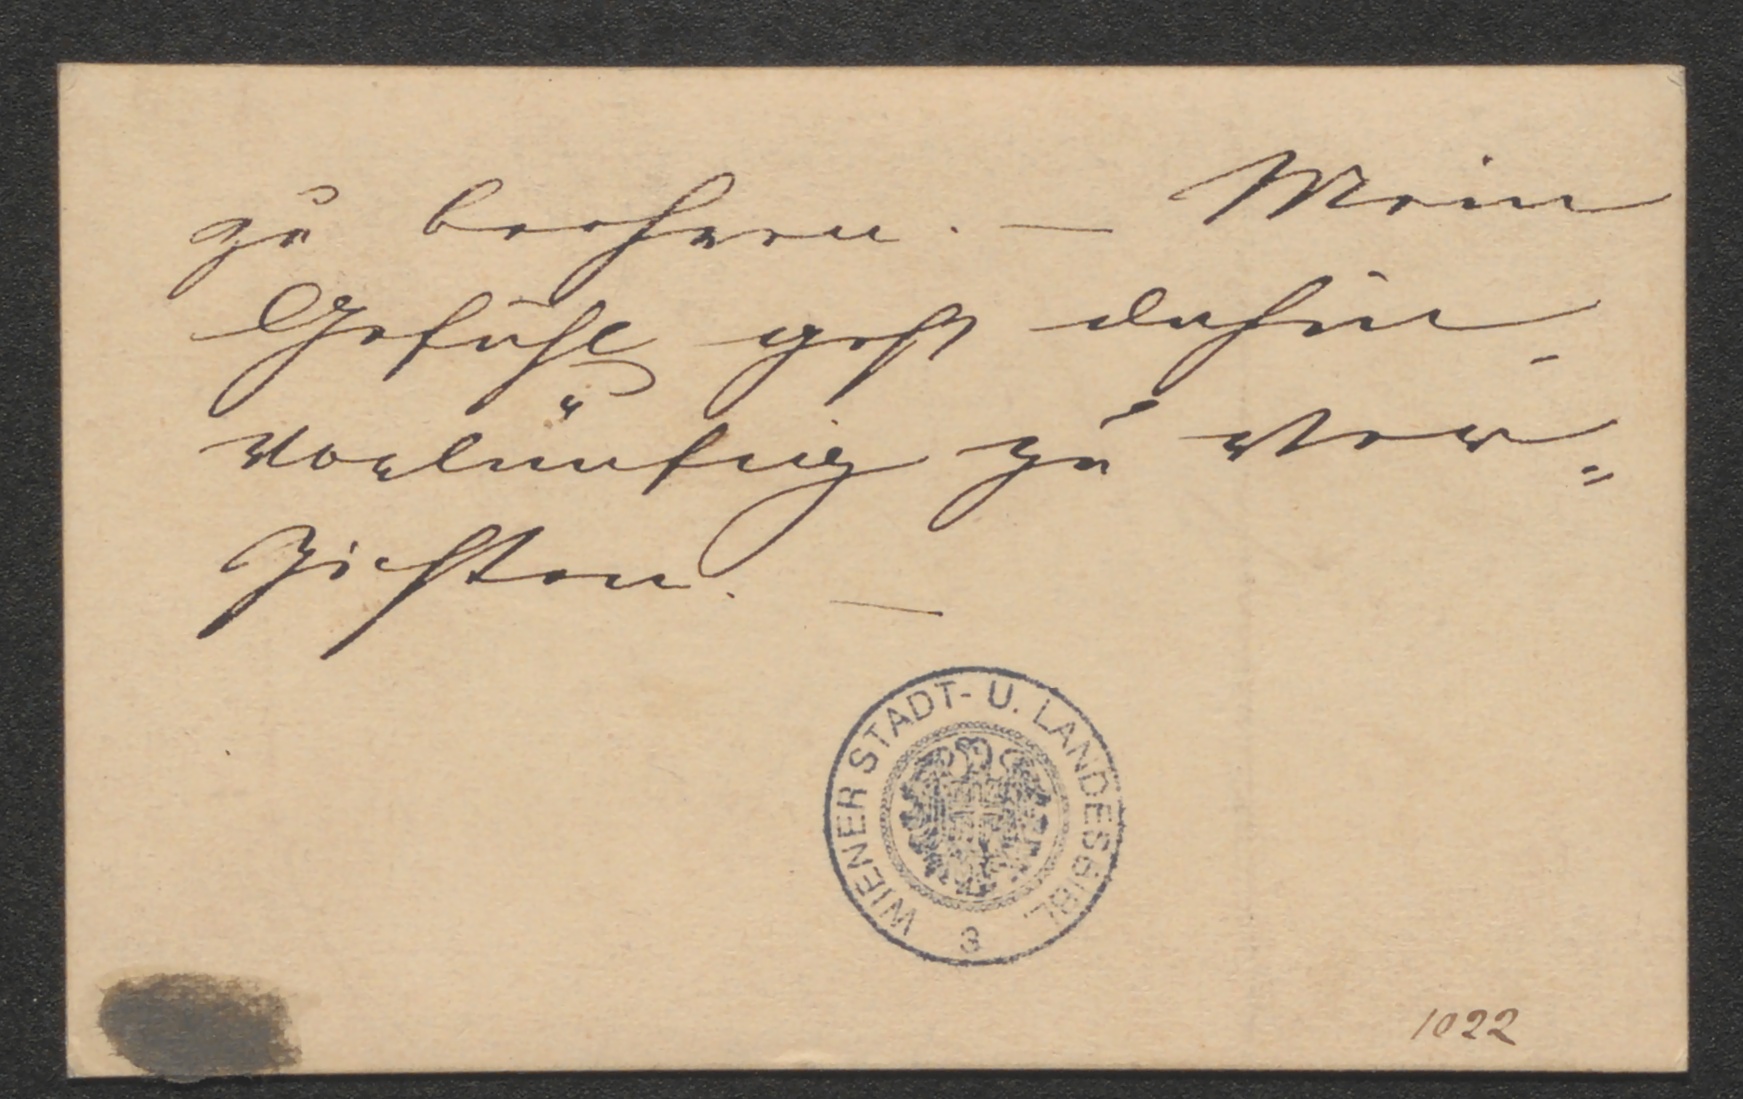 zu beehren. — Mein
Gefühl geht dahin
vorläufig zu ver=
zichten. —
WIENER STADT- U. LANDESBIBL.
3
1022